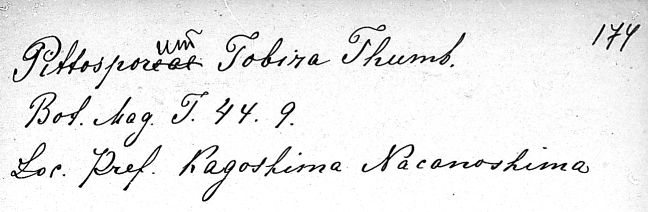 174
Pittosporum Tobira Thumb.
Bot. Mag. T. 44. 9.
Loc. Pref. Kagoshima Nacanoshima